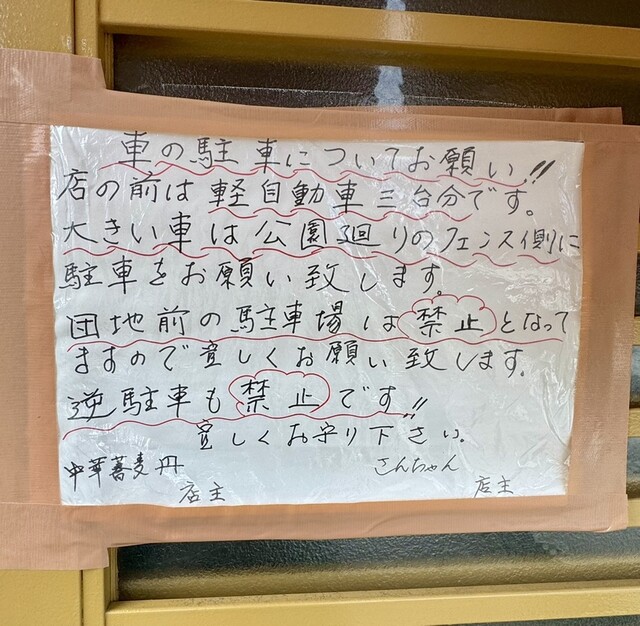 車の駐車についてお願い!!
店の前は軽自動車三台分です。
大きい車は公園廻りのフェンス側に
駐車をお願い致します。
団地前の駐車場は禁止となって
ますので宜しくお願い致します。
逆駐車も禁止です!!
宜しくお守り下さい。
中華蕎麦 丹 さんちゃん
店主 店主